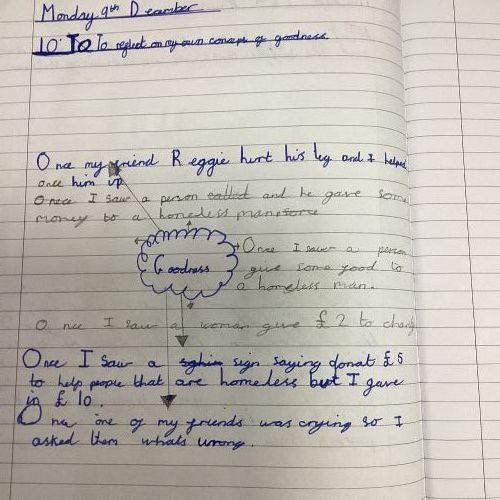 Monday 9th December
LO: To To reflect on my own concept of goodness
Once my friend Reggie hurt his leg and I helped
once him up
Once I saw a person called and he gave some
money to a homeless man
Once I saw a person
Goodness
give some food to
a homeless man.
Once I saw a woman give £2 to charity
Once I saw a sign saying donat £5
to help people that are homeless but I gave
in £10.
Once one of my friends was crying so I
asked them whats wrong.